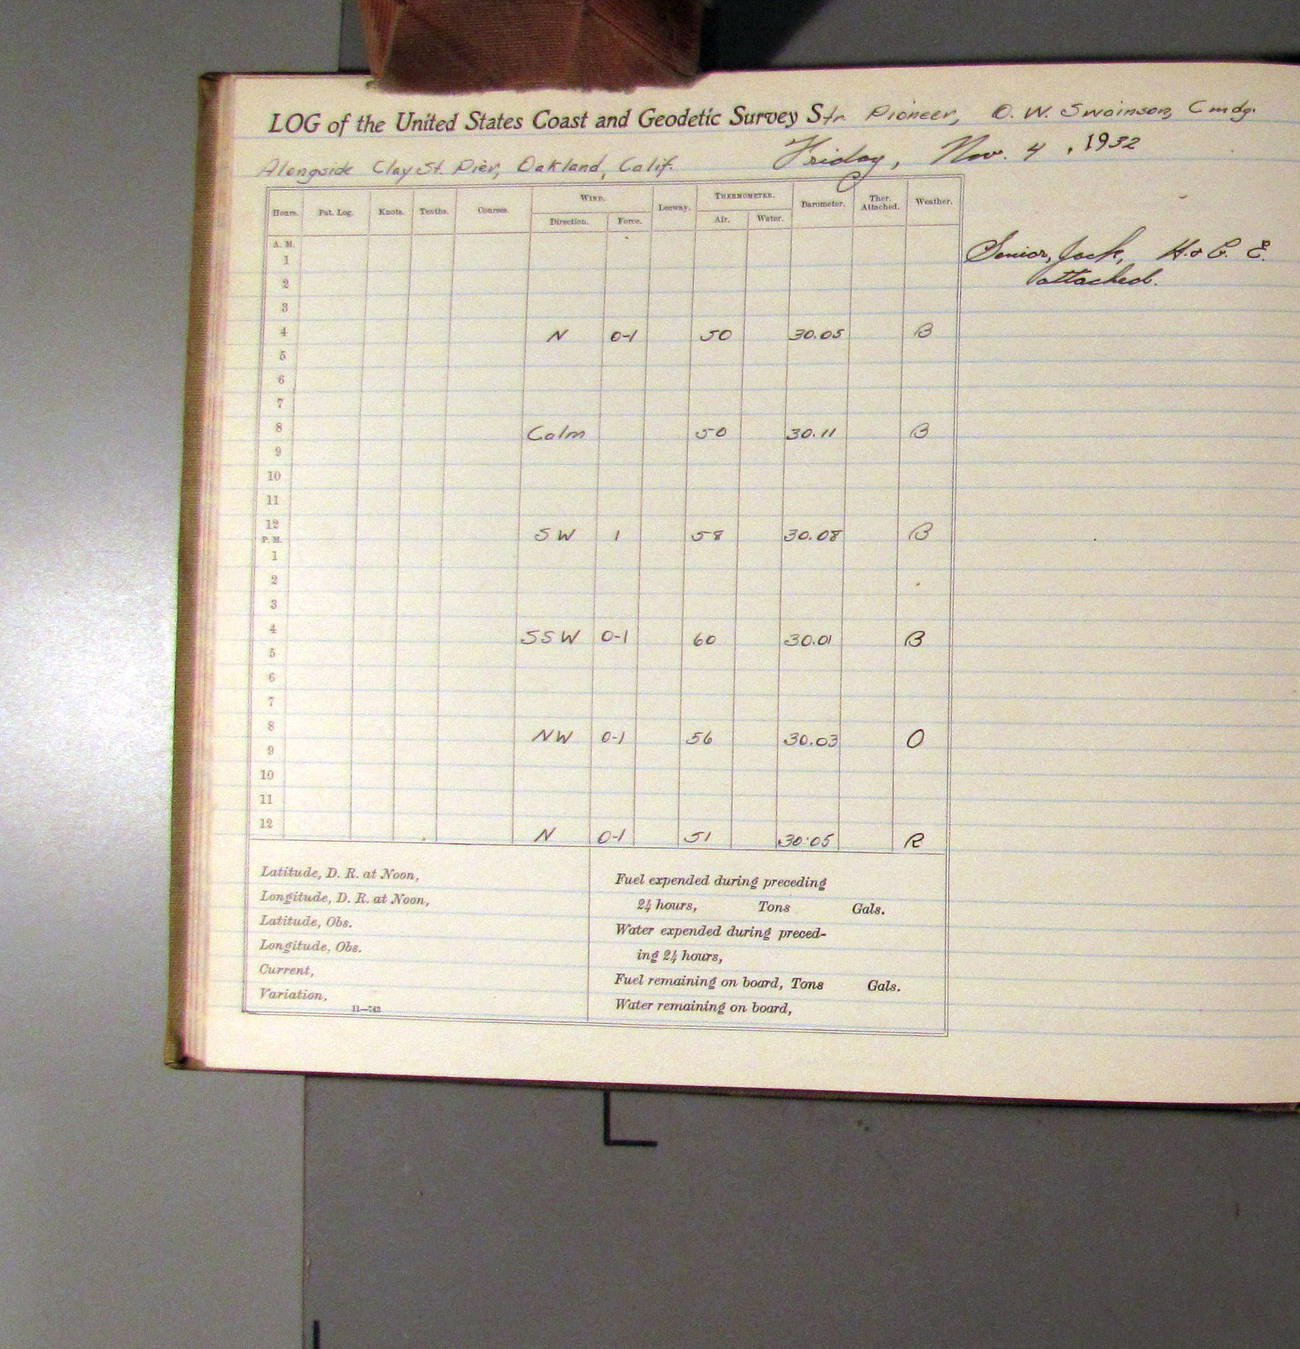 LOG of the United States Coast and Geodetic Survey Str Pioneer, O. W. Swainson, Cmdg.
Alongside Clay St. Pier, Oakland, Calif. Friday, Nov. 4, 1932
Hours. Pat. Log. Knots. Tenths. Courses. WIND. Direction. Force. Leeway. THERMOMETER. Air. Water. Barometer. Ther. Attached. Weather.
A. M.
1 Senior, Jack, H. & G. E.
2 attached.
3
4 N 0-1 50 30.05 B
5
6
7
8 Calm 50 30.11 B
9
10
11
12 SW 1 58 30.08 B
P. M.
1
2
3
4 SSW 0-1 60 30.01 B
5
6
7
8 NW 0-1 56 30.03 O
9
10
11
12 N 0-1 51 30.05 R
Latitude, D. R. at Noon,
Longitude, D. R. at Noon,
Latitude, Obs.
Longitude, Obs.
Current,
Variation,
11—742
Fuel expended during preceding
24 hours, Tons Gals.
Water expended during preced-
ing 24 hours,
Fuel remaining on board, Tons Gals.
Water remaining on board,